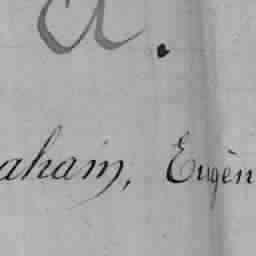 a.
aham, Eugèn